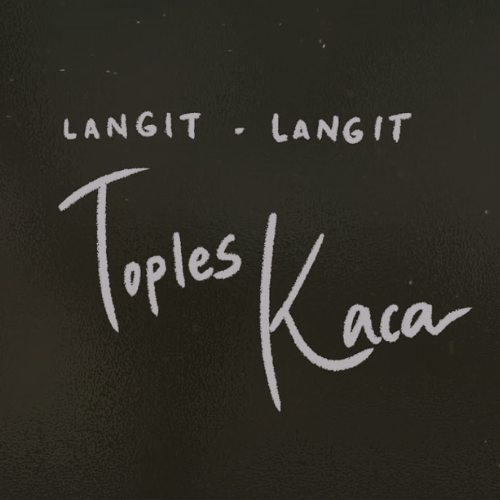 LANGIT - LANGIT
Toples Kaca